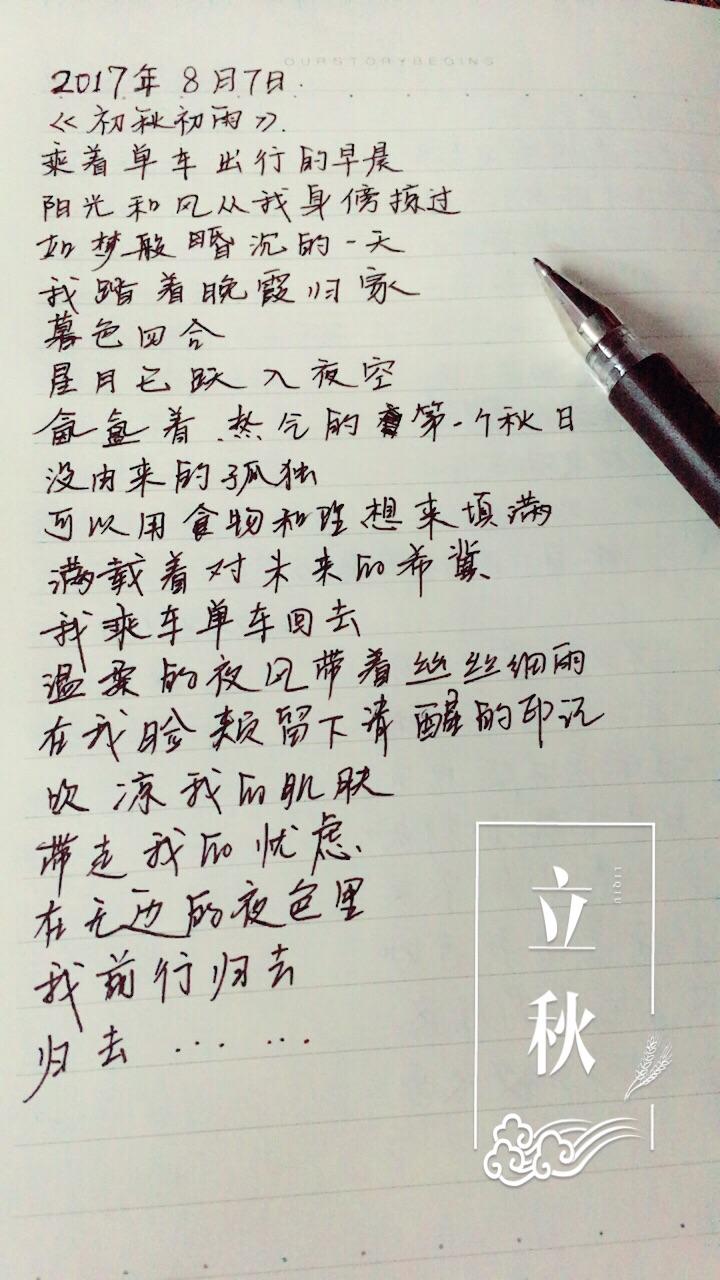 OURSTORYBEGINS
2017年8月7日
《初秋初雨》
乘着单车出行的早晨
阳光和风从我身傍掠过
如梦般昏沉的一天
我踏着晚霞归家
暮色四合
星月已跃入夜空
氤氲着热气的第一个秋日
没由来的孤独
可以用食物和理想来填满
满载着对未来的希冀
我乘车单车回去
温柔的夜风带着丝丝细雨
在我脸颊留下清醒的印记
吹凉我的肌肤
带走我的忧虑
在无边的夜色里
我前行归去
归去……
立秋
LIQIU